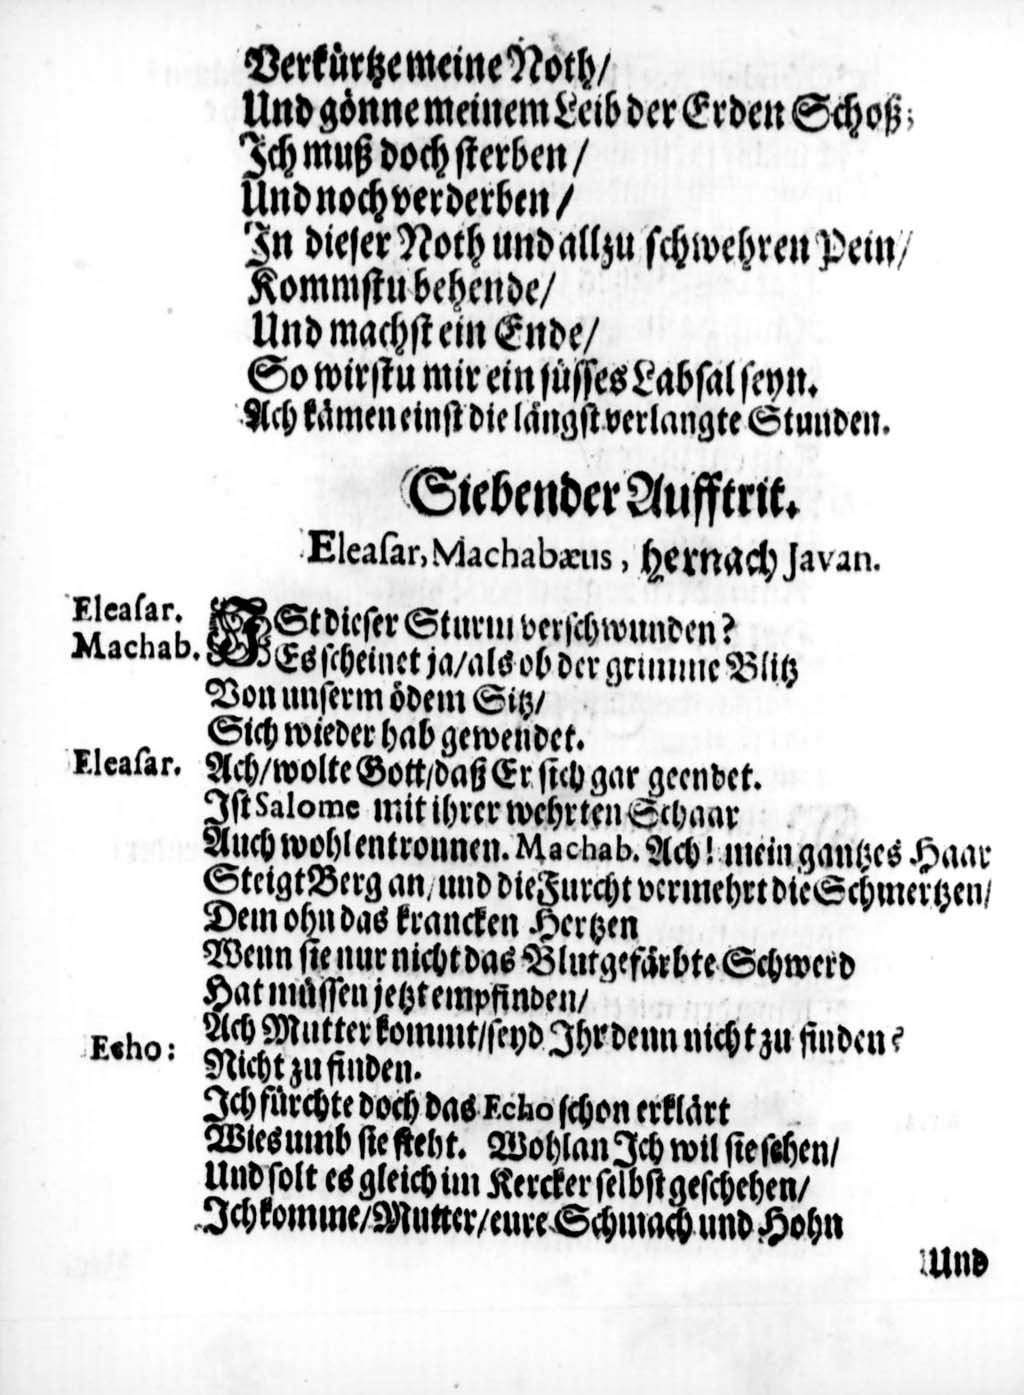 Verkürtze meine Noth/
Und gönne meinem Leib der Erden Schoß;
Ich muß doch sterben/
Und noch verderben/
In dieser Noth und allzu schwehren Pein/
Kommstu behende/
Und machst ein Ende/
So wirstu mir ein süsses Labsal seyn.
Ach kämen einst die längst verlangte Stunden.
Siebender Aufftrit.
Eleasar, Machabæus, hernach Javan.
Eleasar. ISt dieser Sturm verschwunden?
Machab. Es scheinet ja/als ob der grimme Blitz
Von unserm ödem Sitz/
Sich wieder hab gewendet.
Eleasar. Ach/wolte Gott/daß Er sich gar geendet.
Ist Salome mit ihrer wehrten Schaar
Auch wohl entronnen. Machab. Ach! mein gantzes Haar
Steigt Berg an/und die Furcht vermehrt die Schmertzen/
Dem ohn das krancken Hertzen
Wenn sie nur nicht das Blutgefärbte Schwerd
Hat müssen jetzt empfinden/
Ach Mutter kommt/seyd Ihr denn nicht zu finden?
Echo: Nicht zu finden.
Ich fürchte doch das Echo schon erklärt
Wies umb sie steht. Wohlan Ich wil sie sehen/
Und solt es gleich im Kercker selbst geschehen/
Ich komme/Mutter/eure Schmach und Hohn
Und